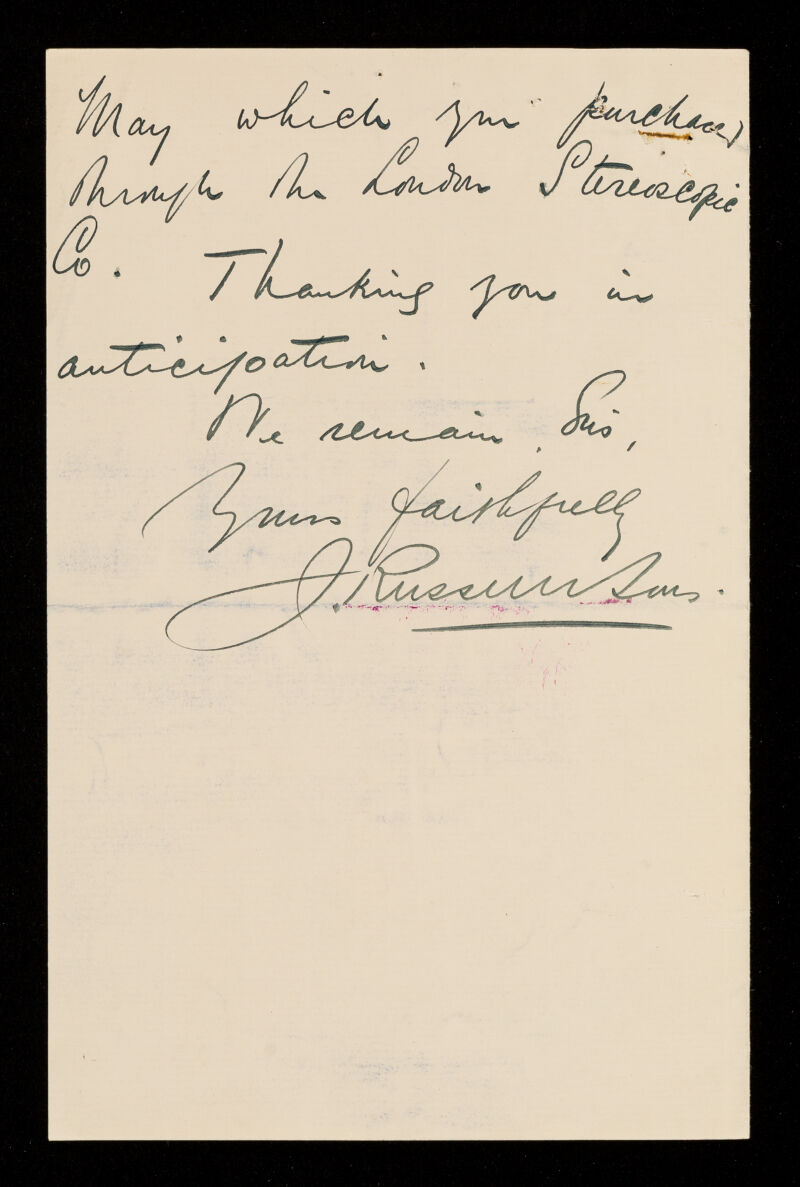 May which you purchased
through the London Stereoscopic
Co. Thanking you in
anticipation.
We remain, Sirs,
Yours faithfully
J. Russell & Sons.